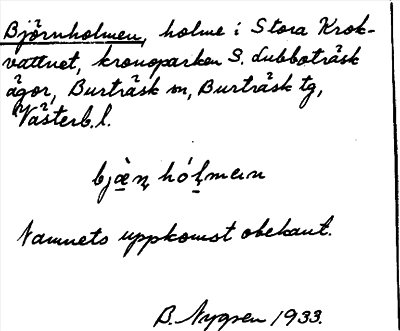 Björnholmen, holme i Stora Krok-
vattnet, kronoparken S. Lubboträsk
ägor, Burträsk sn, Burträsk tg,
Västerb.l.
bjæ̀ṇ hóḷmen
Namnets uppkomst obekant.
B. Nygren 1933.